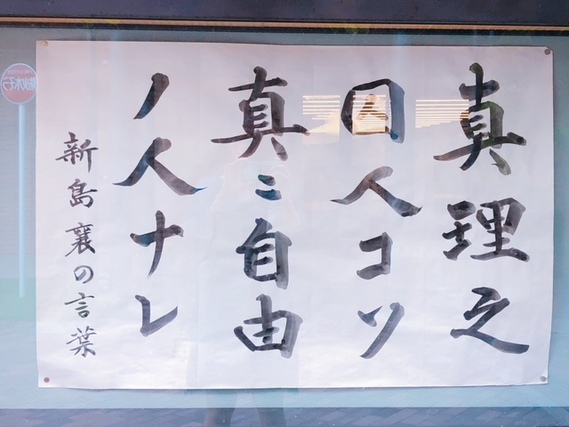 真理之
囚人コソ
真ニ自由
ノ人ナレ
新島襄の言葉